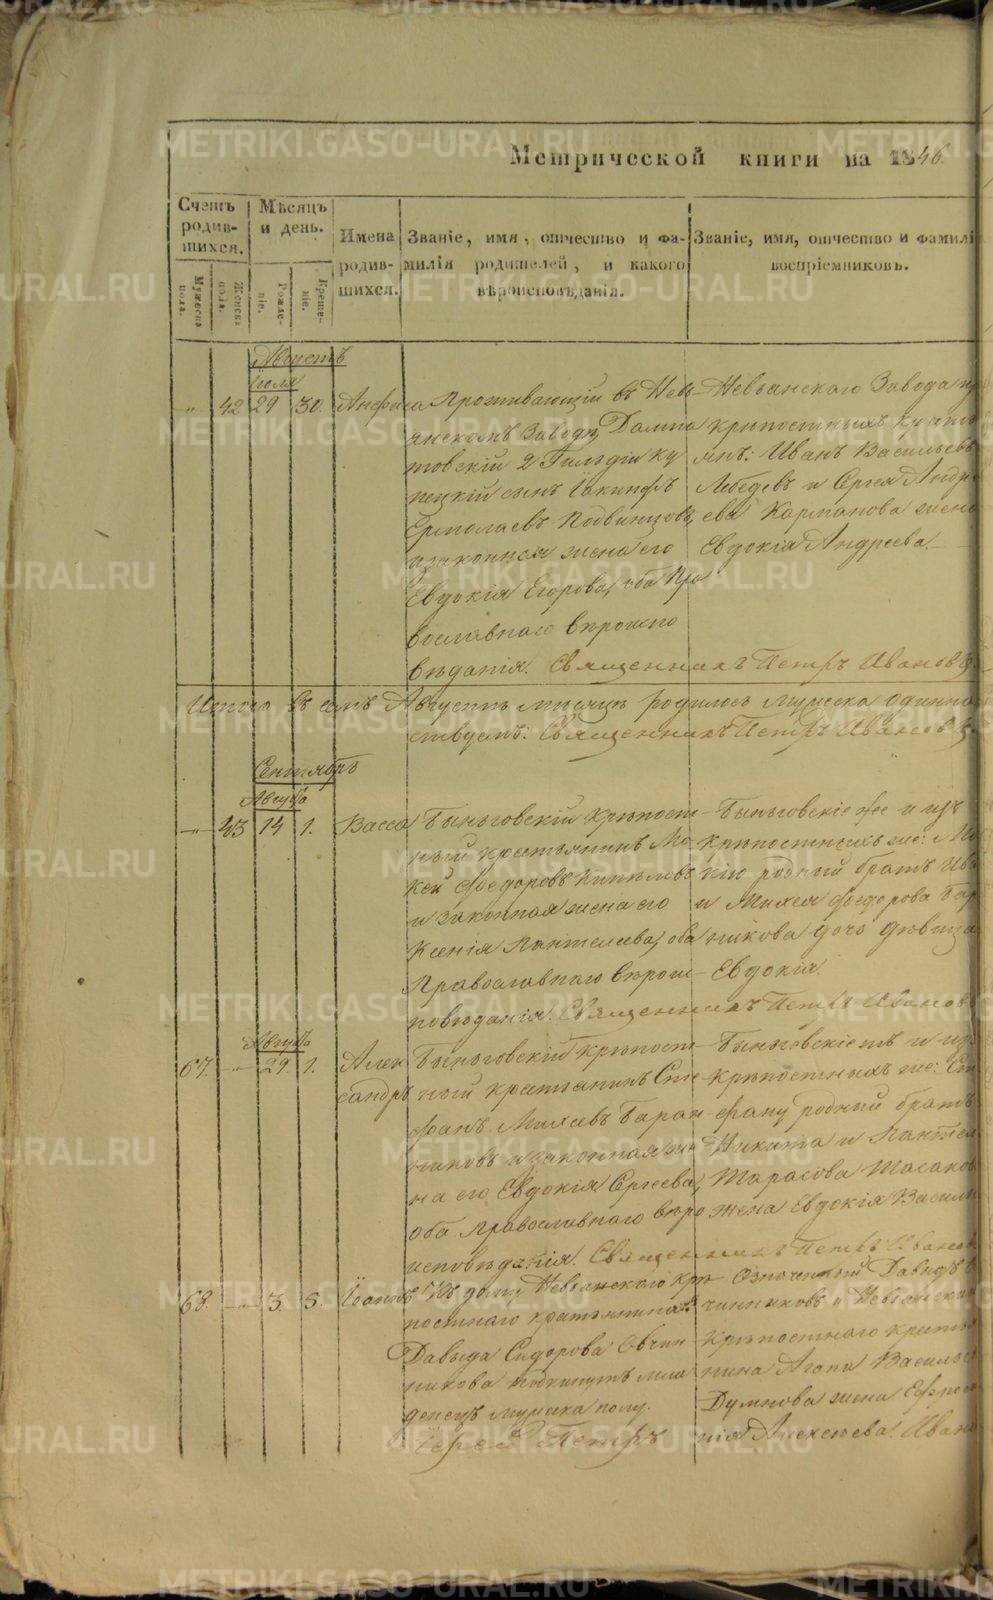 METRIKI.GASO-URAL.RU
Метрической книги на 1846.
Счетъ родив-шихся.
Мужеска пола.
Женска пола.
Мѣсяцъ и день.
Рожде-ніе.
Креще-ніе.
Имена родив-шихся.
Званіе, имя, отчество и фа-милія родителей, и какого вѣроисповѣданія.
Званіе, имя, отчество и фамилі
воспріемниковъ.
Августъ
Іюля
42 29 30. Анфиса
Проживающій въ Невь-
янскомъ Заводѣ
товскій 2 Гильдіи ку
пецкій сынъ Іакинфъ
Ермолаевъ Подвинцовъ,
и законная жена его
Евдокія Егорова, оба Пра
вославнаго вѣроиспо
вѣданія. Священникъ Петръ Ивановъ
Невьянскаго Завода из
крѣпостныхъ крестья
янъ: Иванъ Васильевъ
Лебедевъ и Сергея Андре
ева Карманова жена
Евдокія Андреева.
Итого въ семъ Августѣ мѣсяцѣ родилось мужеска одинна
Священникъ Петръ Ивановъ
Сентябрь
Августа
43 14 1. Васса
Быньговскій крѣпост-
ный крестьянинъ Мо
кей Федоровъ
и законная жена его
Ксенія Пантелеева, оба
Православнаго вѣроис-
повѣданія. Священникъ Петръ Ивановъ
Быньговскіе же и изъ
крѣпостныхъ же: Мо
кію родный братъ Ива
и Михея Федорова Бар
никова дочь дѣвица
Евдокія.
Августа
67. 29 1. Алек
сандръ
Быньговскій крѣпост-
ной крестьянинъ Сте
фанъ Михеевъ Баран
никовъ и законная же
на его Евдокія Сергеева,
оба Православнаго вѣро
исповѣданія. Священникъ Петръ Ивановъ
Быньговскіе жъ и из
крѣпостныхъ же: Сте
фану родный братъ
Никита и Пантел
Тарасова
жена Евдокія Василь
68. 3. 5. Іоаннъ
Въ дому Невьянскаго крѣ
постнаго крестьянина
Давыда Сидорова Овчин
никова подкинутъ мла
денецъ мужска полу.
Іерей Петръ
Означенный Давыдъ О
чинниковъ и Невьянскаго
крѣпостнаго крестья
нина Агапа Васильева
Думнова жена Евфроси
нія Алексеева. Ивано